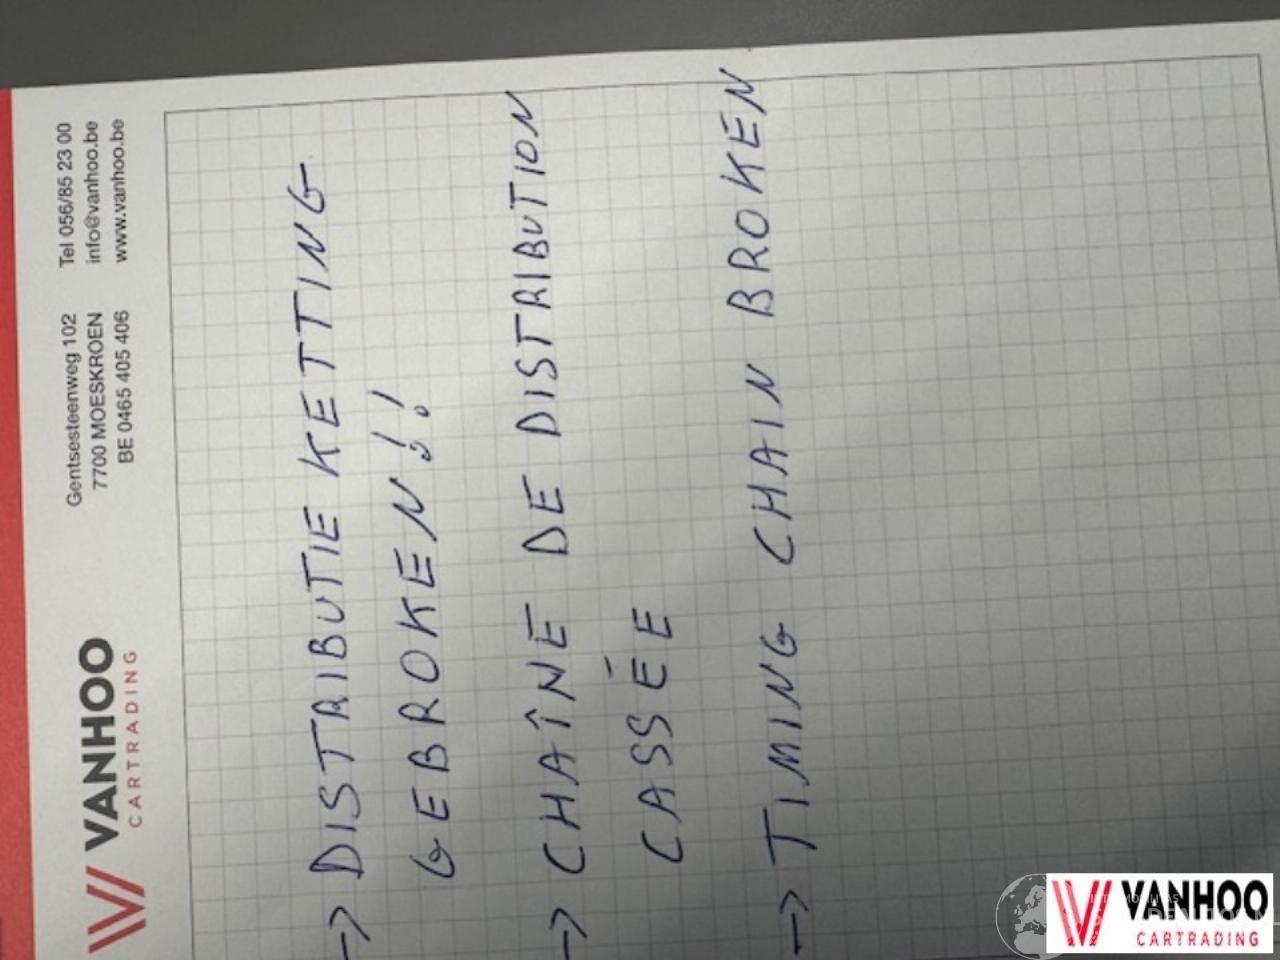 VANHOO
CARTRADING
Gentsesteenweg 102
7700 MOESKROEN
BE 0465 405 406
Tel 056/85 23 00
info@vanhoo.be
www.vanhoo.be
→ DISTRIBUTIE KETTING
GEBROKEN!!
→ CHAÎNE DE DISTRIBUTION
CASSÉE
→ TIMING CHAIN BROKEN
VANHOO
CARTRADING